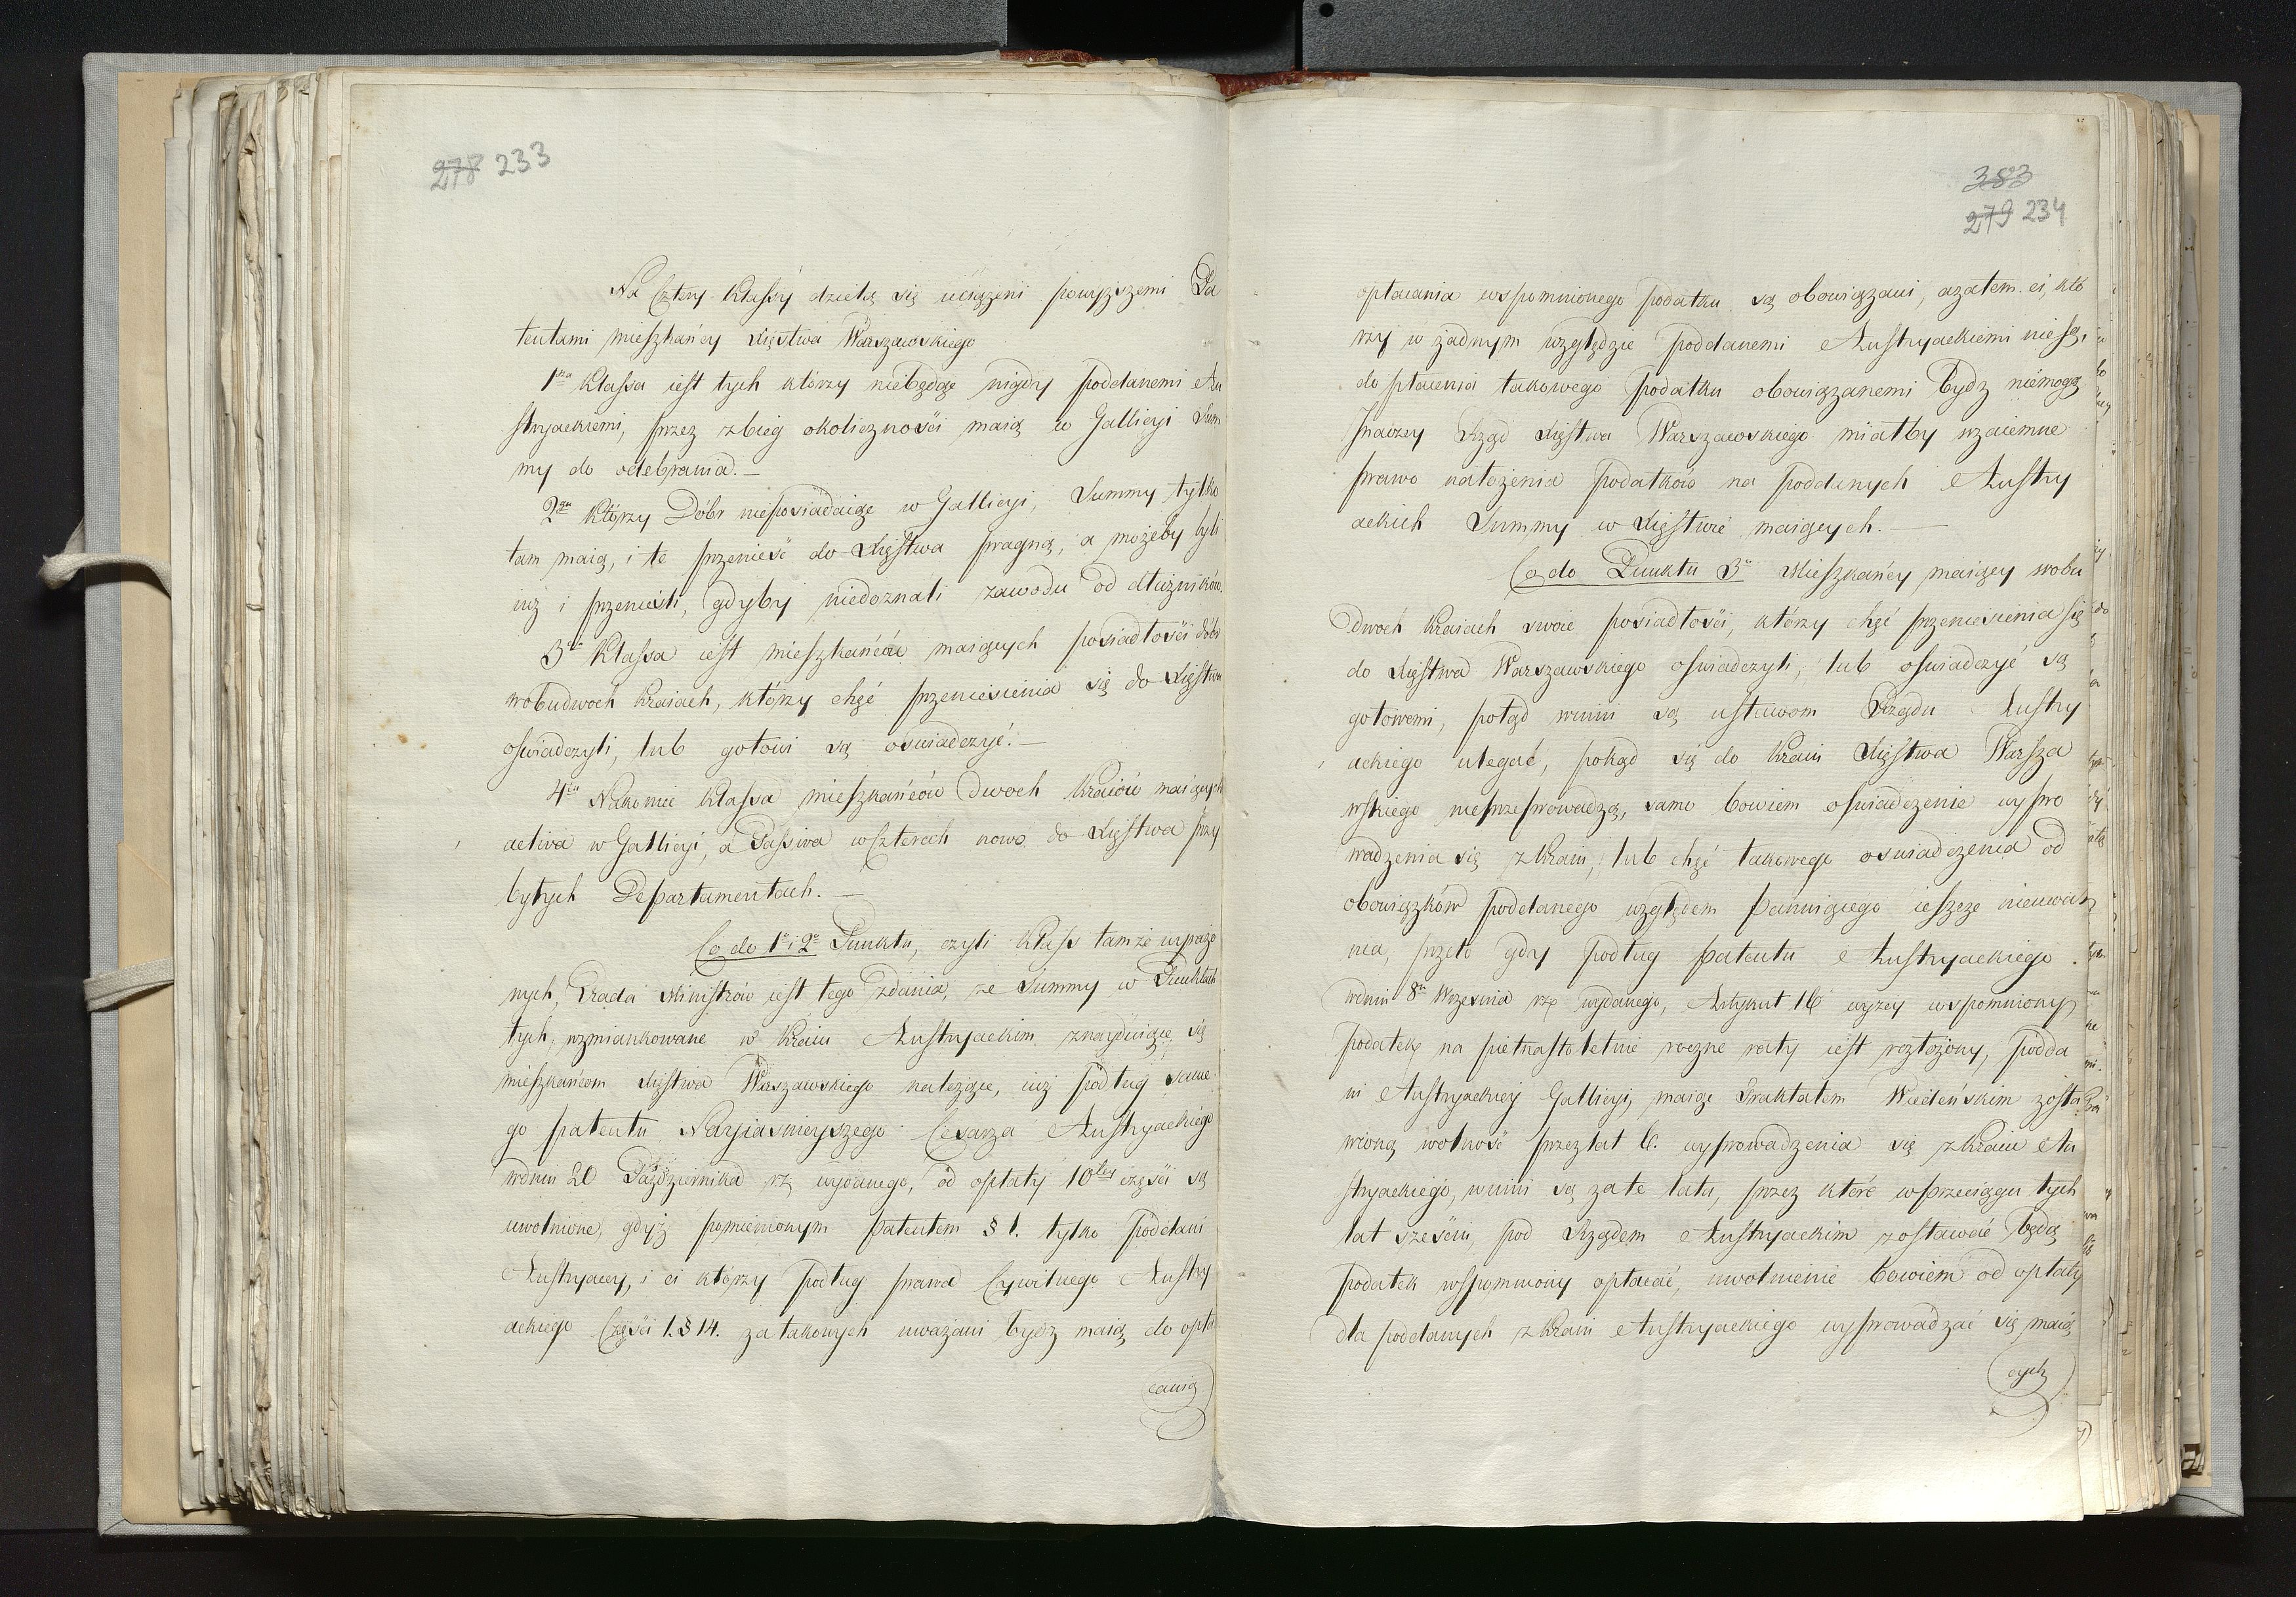 278 233
Na Cztery klassy dzielą się uciążeni powyższemi Pa
tentami mieszkańcy Xięstwa Warszawskiego
1sza klassa iest tych którzy niebędąc nigdy poddanemi Au
stryackiemi, przez zbieg okoliczności maią w Gallicyi Sum
my do odebrania. —
2ga którzy Dóbr nieposiadaiąc w Gallicyi, Summy tylko
tam maią, i te przenieść do Xięstwa pragną, a możeby byli
iuż i przenieśli, gdyby niedoznali zawodu od dłużników.
3cia klassa iest mieszkańców maiących posiadłości dóbr
wobudwoch kraiach, którzy chęć przeniesienia się do Xięstwa
oświadczyli, lub gotowi są oświadczyć. —
4ta Nakoniec klassa mieszkańców dwoch kraiów maiących
activa w Gallicyi, a Passiva wczterech nowo do Xięstwa przy
bytych Departamentach. —
Co do 1o i 2o Punktu, czyli klass tamże wyrażo
nych, Rada Ministrów iest tego zdania, że Summy w Punktach
tych, wzmiankowane w kraiu Austryackim znayduiące się
mieszkańcom Xięstwa Warszawskiego należące, iuż podług same
go patentu Nayiaśnieyszego Cesarza Austryackiego
wdniu 20 Października rż wydanego, od opłaty 10tey części są
uwolnione, gdyż pomienionym Patentem § 1. tylko poddani
Austryaccy, i ci którzy podług prawa Cywilnego Austry
ackiego Części 1. § 14. za takowych uważani bydź maią do opła
cania
383
279 234
opłacania wspomnionego podatku są obowiązani, azatem ci, któ
rzy w żadnym względzie poddanemi Austryackiemi niesą,
do płacenia takowego podatku obowiązanemi bydź niemogą
Inaczey Rząd Xięstwa Warszawskiego miałby wzaiemne
prawo nałożenia podatków na poddanych Austry
ackich Summy w Xięstwie maiących. —
Co do Punktu 3o Mieszkańcy maiący wobu
dwóch kraiach swoie posiadłości, którzy chęć przeniesienia się
do Xięstwa Warszawskiego oświadczyli, lub oświadczyć są
gotowemi, potąd winni są ustawom Rządu Austry
ackiego ulegać, pokąd się do kraiu Xięstwa Warsza
wskiego nieprzeprowadzą, samo bowiem oświadczenie wypro
wadzenia się z kraiu, lub chęć takowego oświadczenia od
obowiązków poddanego względem Panuiącego ieszcze nieuwal
nia, przeto gdy podług Patentu Austryackiego
wdniu 8u Września rż wydanego, Artykuł 16 wyżey wspomniony
podatek na pietnastoletnie roczne raty iest rozłożony, podda
ni Austryackiey Gallicyi, maiąc Traktatem Wiedeńskim zosta
wioną wolność przez lat 6. wyprowadzenia się z kraiu Au
stryackiego, winni są za te lata, przez które wprzeciągu tych
lat sześciu, pod Rządem Austryackim zostawać będą
podatek wspomniony opłacać, uwolnienie bowiem od opłaty
dla poddanych z kraiu Austryackiego wyprowadzać się maią
cych